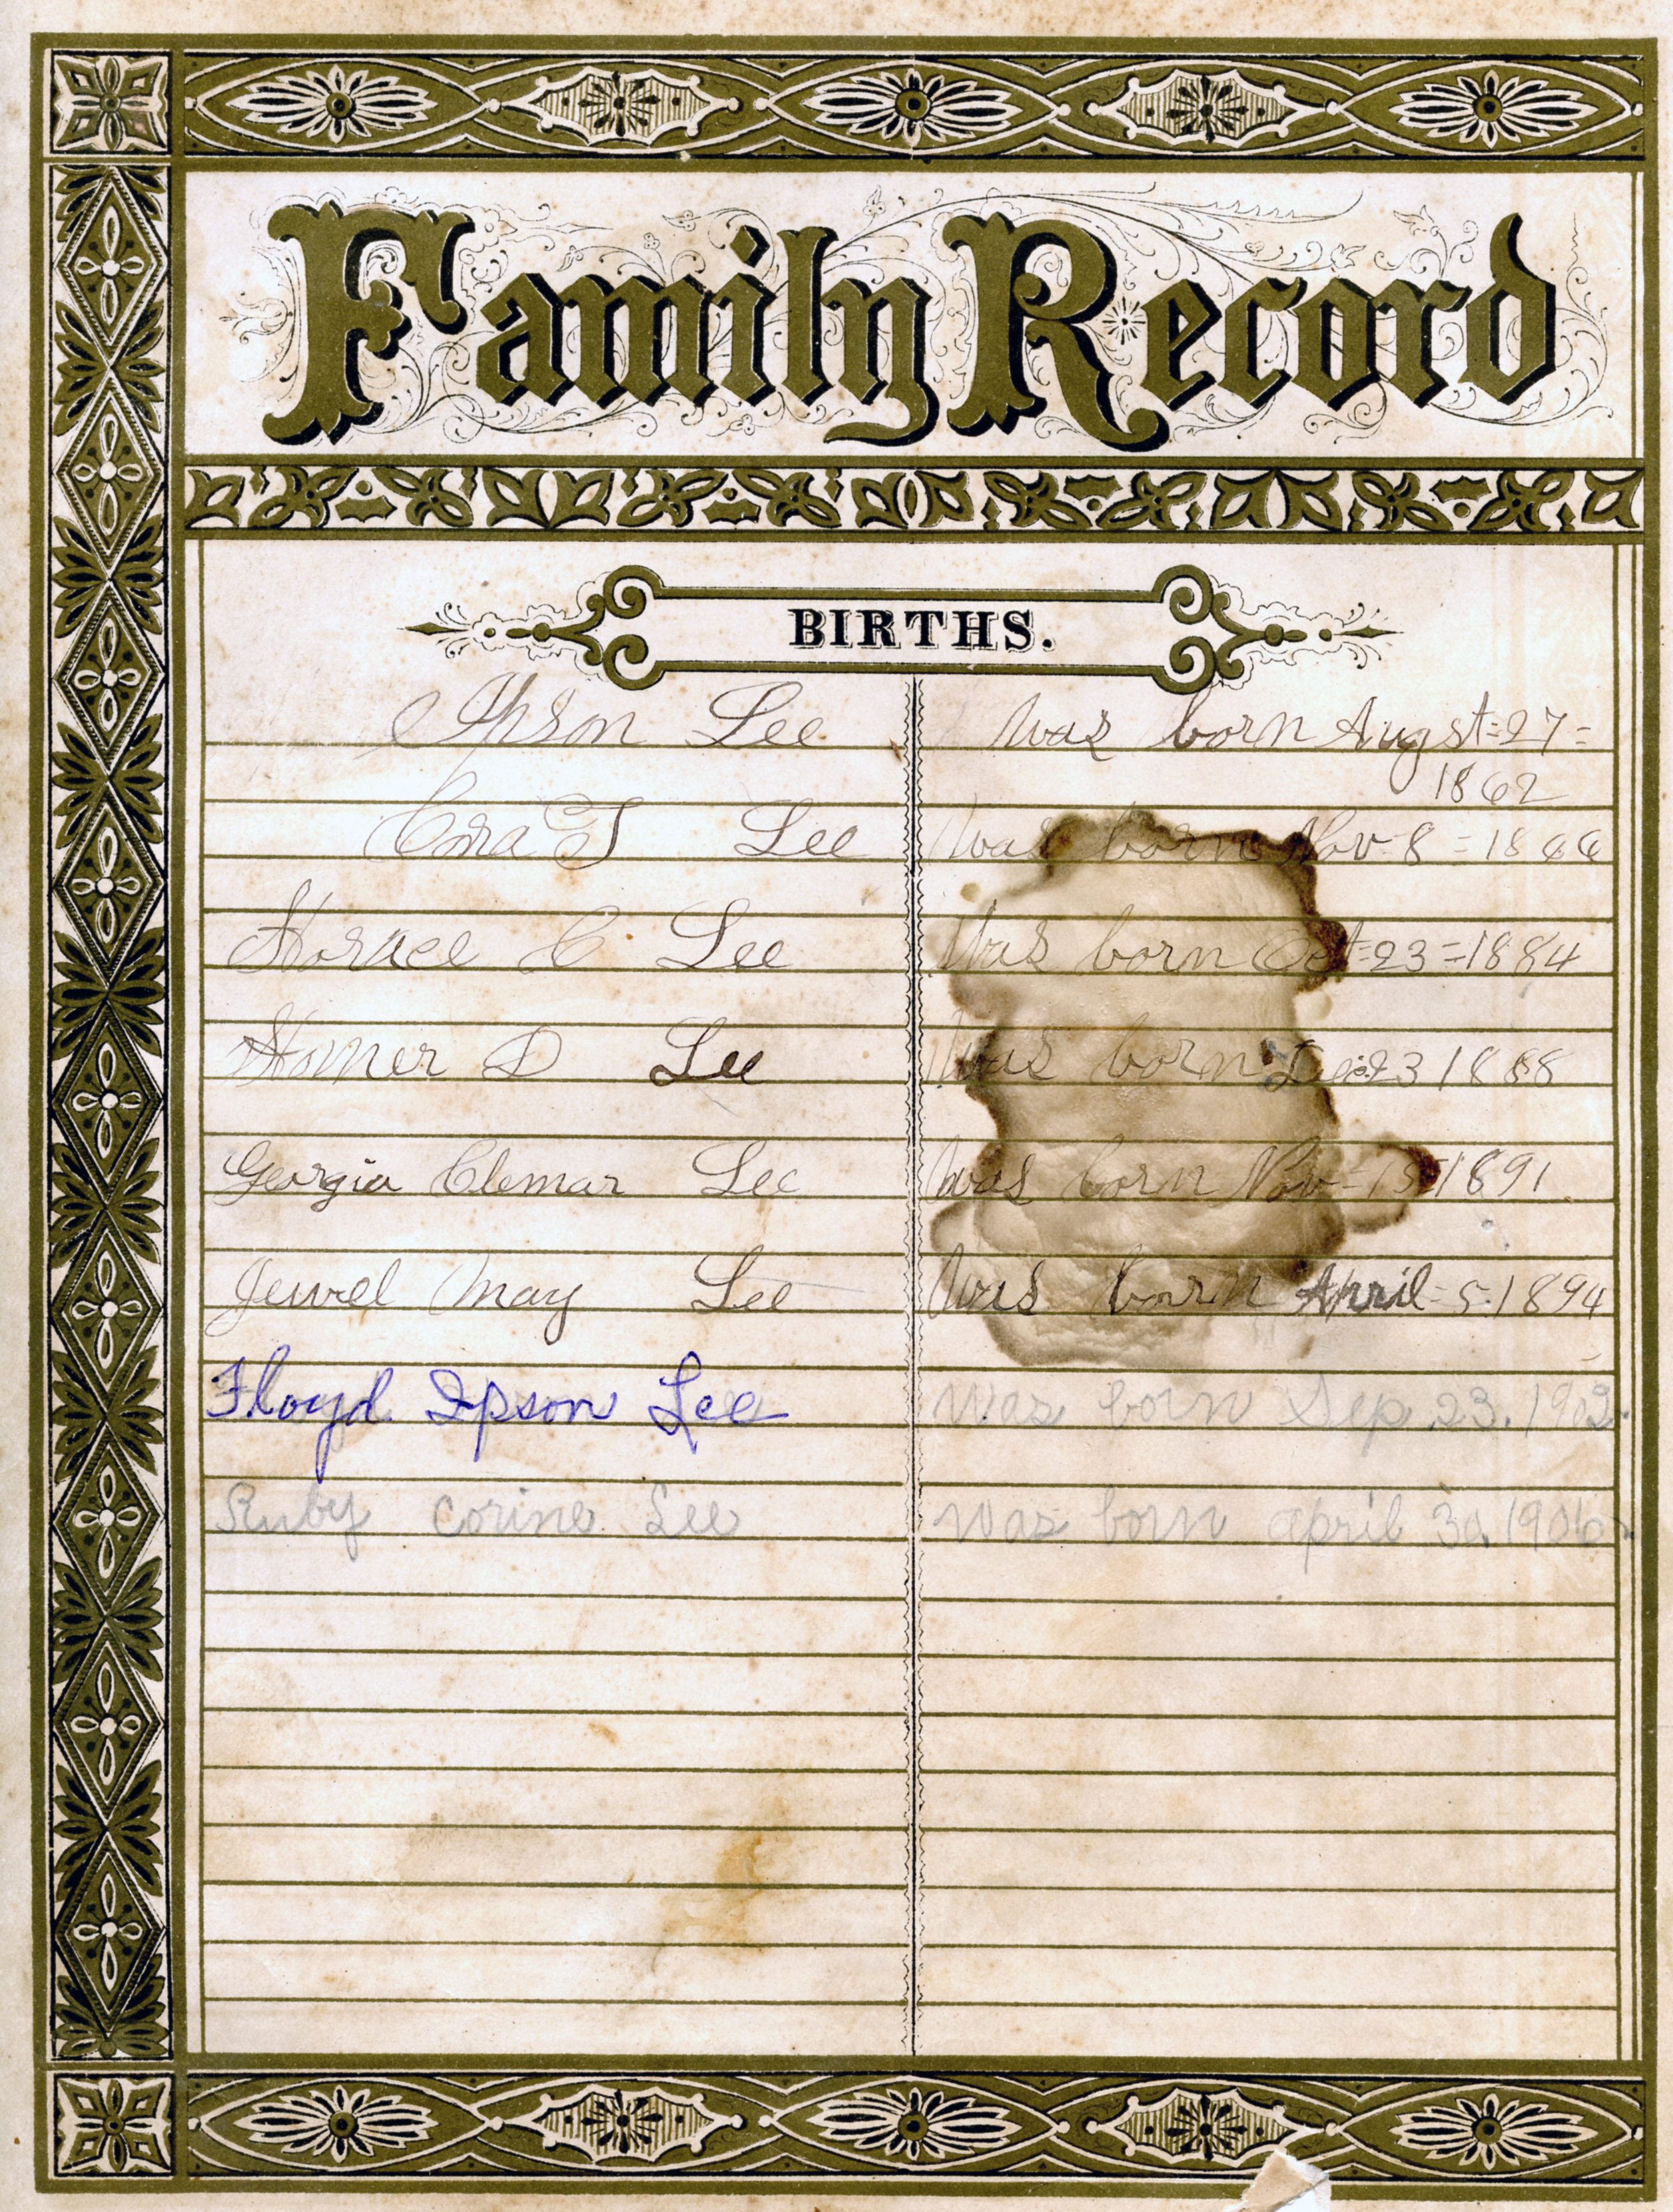 Family Record
BIRTHS.
Ipson Lee was born Augst=27=
1862
Cora E J Lee was born Nov-8=1866
Horace C Lee was born Oct=23=1884
Homer D Lee was born Dec.23 1888
Georgia Clemar Lee was born Nov=15=1891.
Jewel May Lee was born April=5.1894
Floyd Ipson Lee was born Sep. 23. 1902.
Ruby Corine Lee was born april 30. 1906.